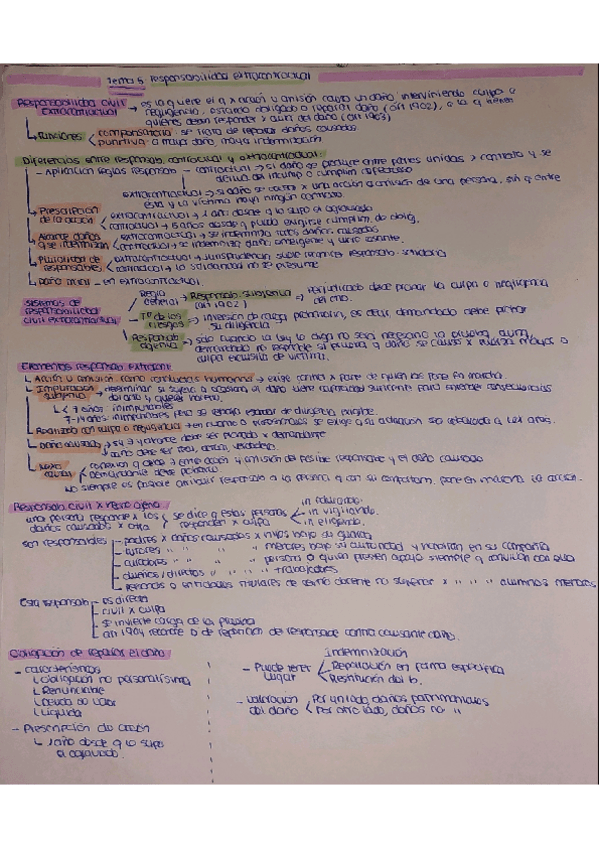 Tema 6: responsabilidad extracontractual
Responsabilidad civil → es la q quiere el q x acción u omisión causa un daño interviniendo culpa o
extracontractual negligencia, estando obligado a reparar daño (art 1902), o la q tienen
quienes deban responder x autor del daño (art 1903)
↳ Funciones compensatoria: se trata de reparar daños causados
punitiva → a mayor daño, mayor indemnización
Diferencias entre responsab. contractual y extracontractual:
- Aplicación reglas responsab - contractual → si daño se produce entre partes unidas x contrato y se
deriva del incump o cumplim defectuoso
extracontractual → si daño se causa x una acción u omisión de una persona, sin q entre
ésta y la víctima haya ningún contrato
↳ Prescripción extracontractual → 1 año desde q lo supo el agraviado
de la acción contractual → 5 años desde q pueda exigirse cumplim. de oblig.
↳ Alcance daños extracontractual → se indemniza todos daños causados
q se indemnizan contractual → se indemniza daño emergente y lucro cesante.
↳ Pluralidad de extracontractual → jurisprudencia suele responsab. solidaria
responsables contractual → la solidaridad no se presume
↳ Daño moral - en extracontractual.
Sistemas de Regla general → Responsab. subjetiva → perjudicado debe probar la culpa o negligencia
responsabilidad (art 1902) del otro.
civil extracontractual Tª de los riesgos → inversión de carga probatoria, es decir, demandado debe probar
su diligencia
Responsab. objetiva → solo cuando la ley lo diga no será necesario la prueba, aunq
demandado no responde si prueba q daño se causó x fuerza mayor o
culpa exclusiva de víctima.
Elementos responsab. extracont.
↳ Acción u omisión como conductas humanas → exige control x parte de quien los pone en marcha
↳ Imputación subjetiva → determinar si sujeto q ocasiona el daño tiene capacidad suficiente para entender consecuencias
del acto y querer hacerlo.
↳ < 7 años: inimputables
7-14 años: inimputables pero se enfoca estándar de diligencia exigible.
↳ Realizado con culpa o negligencia → en cuanto a profesionales se exige q su actuación sea adecuada a lex artis.
↳ Daño causado → su 3 y alcance debe ser probado x demandante
↳ daño debe ser real, actual, verdadero.
↳ Nexo causal conexión q debe haber entre acción y omisión del posible responsable y el daño causado
demandante debe probarlo.
No siempre es posible atribuir responsab a la persona q con su comportam. pone en marcha la acción.
Responsab civil x hecho ajeno
una persona responde x los daños causados x otra se dice q estas personas responden x culpa in educando.
in vigilando.
in eligendo.
son responsables - padres x daños causados x hijos bajo su guarda
- tutores " " " " menores bajo su autoridad y habitan en su compañía
- curadores " " " " persona a quien presten apoyo siempre q convivan con ella
- dueños/directores " " " " trabajadores
- personas o entidades titulares de centro docente no superior x " " " alumnos menores.
Esta responsab - es directa
- civil x culpa
- se invierte carga de la prueba
- art 1904 recorde o de repetición del responsable contra causante daño.
Obligación de reparar el daño
- características
↳ Obligación no personalísima
↳ Renunciable
↳ Deuda de valor
↳ Líquida
- Prescripción de acción
↳ 1 año desde q lo supo
el agraviado.
- Puede tener lugar Indemnización
Reparación en forma específica
Restitución del b.
- valoración del daño Por un lado daños patrimoniales
Por otro lado, daños no "